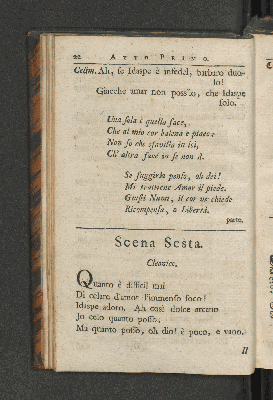 22 ATTO PRIMO.
Celim. Ah, se Idaspe è infedel, barbaro duo-
lo!
Giacche amar non posso, che Idaspe
solo.
Una sola è quella face,
Che al mio cor balena e piace:
Non so che sfavilla in lei,
Ch' altra face in se non à.
Se fuggirla penso, oh dei!
Mi trattiene Amor il piede.
Giusti Numi, il cor vi chiede
Ricompensa, o Libertà.
parte.
Scena Sesta.
Cleonice.
Quanto è difficil mai
Di celare d'amor l'immenso foco!
Idaspe adoro. Ah così dolce arcano
Jo celo quanto posso,
Ma quanto posso, oh dio! è poco, e vano.
Il